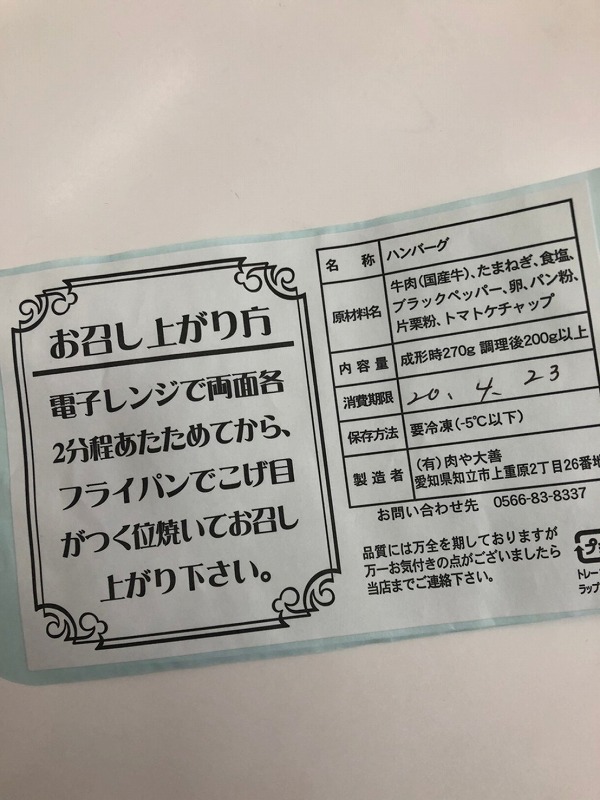 お召し上がり方
電子レンジで両面各
2分程あたためてから、
フライパンでこげ目
がつく位焼いてお召し
上がり下さい。
名 称 ハンバーグ
原材料名 牛肉(国産牛)、たまねぎ、食塩、
ブラックペッパー、卵、パン粉、
片栗粉、トマトケチャップ
内容量 成形時270g 調理後200g以上
消費期限 20. 4. 23
保存方法 要冷凍(-5℃以下)
製造者 (有)肉や大善
愛知県知立市上重原2丁目26番地
お問い合わせ先 0566-83-8337
品質には万全を期しておりますが
万一お気付きの点がございましたら
当店までご連絡下さい。
プ
トレー
ラップ